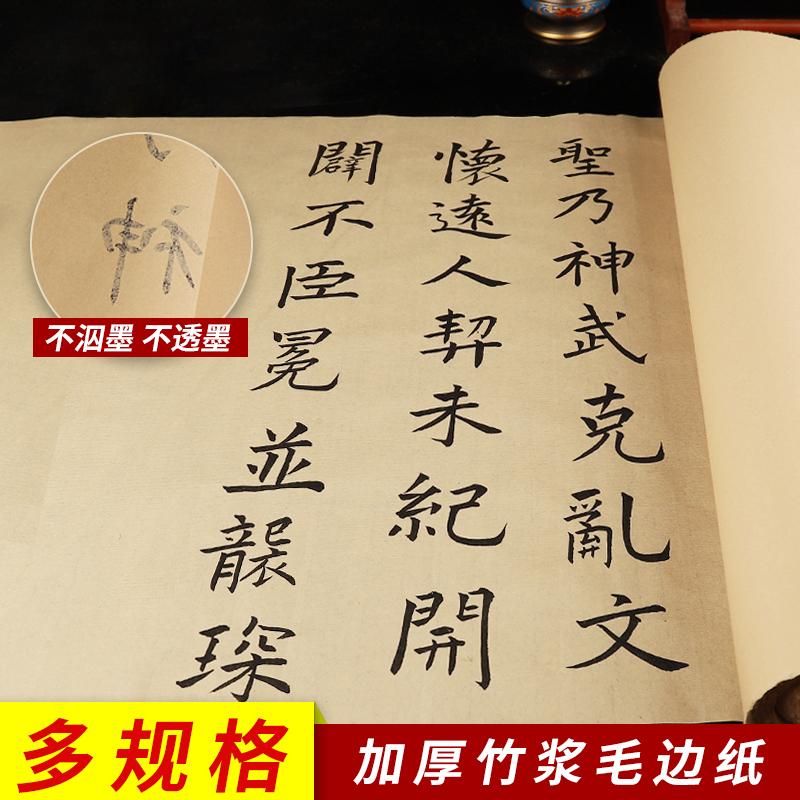 聖乃神武克亂文
懷遠人契未紀開
闢不臣冕並襲琛
不洇墨 不透墨
多规格
加厚竹浆毛边纸